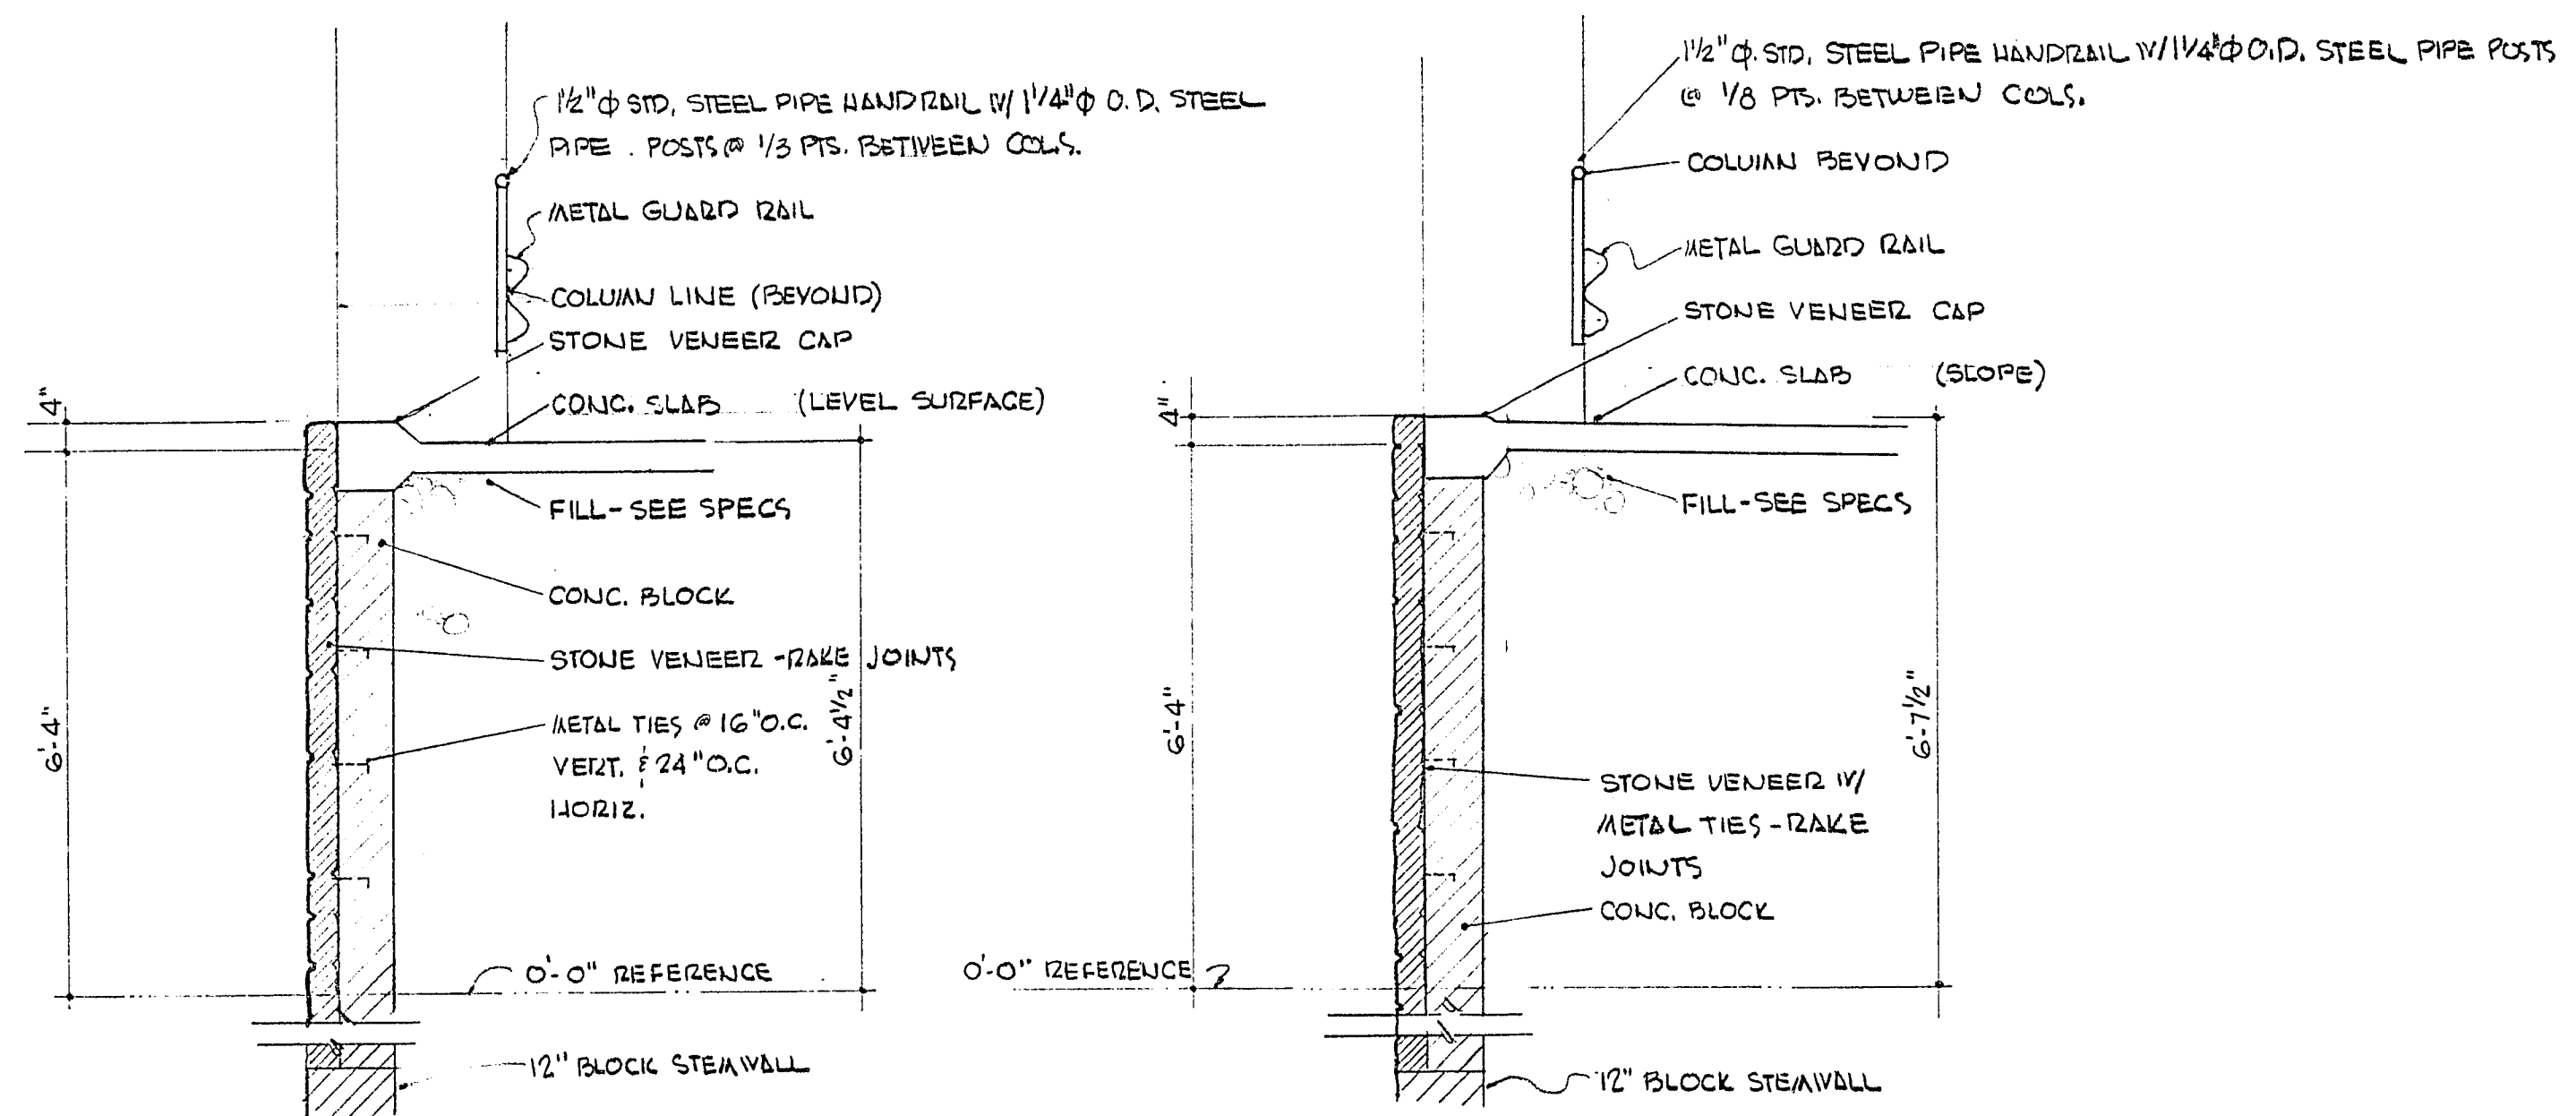 1½"φ STD. STEEL PIPE HANDRAIL W/ 1¼"φ O.D. STEEL
PIPE . POSTS @ 1/3 PTS. BETWEEN COLS.
METAL GUARD RAIL
COLUMN LINE (BEYOND)
STONE VENEER CAP
CONC. SLAB (LEVEL SURFACE)
4"
FILL-SEE SPECS
CONC. BLOCK
STONE VENEER -RAKE JOINTS
METAL TIES @ 16"O.C.
VERT. & 24"O.C.
HORIZ.
6'-4"
6'-4½"
0'-0" REFERENCE
12" BLOCK STEMWALL
1½"φ. STD. STEEL PIPE HANDRAIL W/1¼"φ O.D. STEEL PIPE POSTS
@ 1/8 PTS. BETWEEN COLS.
COLUMN BEYOND
METAL GUARD RAIL
STONE VENEER CAP
CONC. SLAB (SLOPE)
4"
FILL-SEE SPECS
6'-4"
6'-7½"
STONE VENEER W/
METAL TIES-RAKE
JOINTS
CONC. BLOCK
0'-0" REFERENCE
12" BLOCK STEMWALL